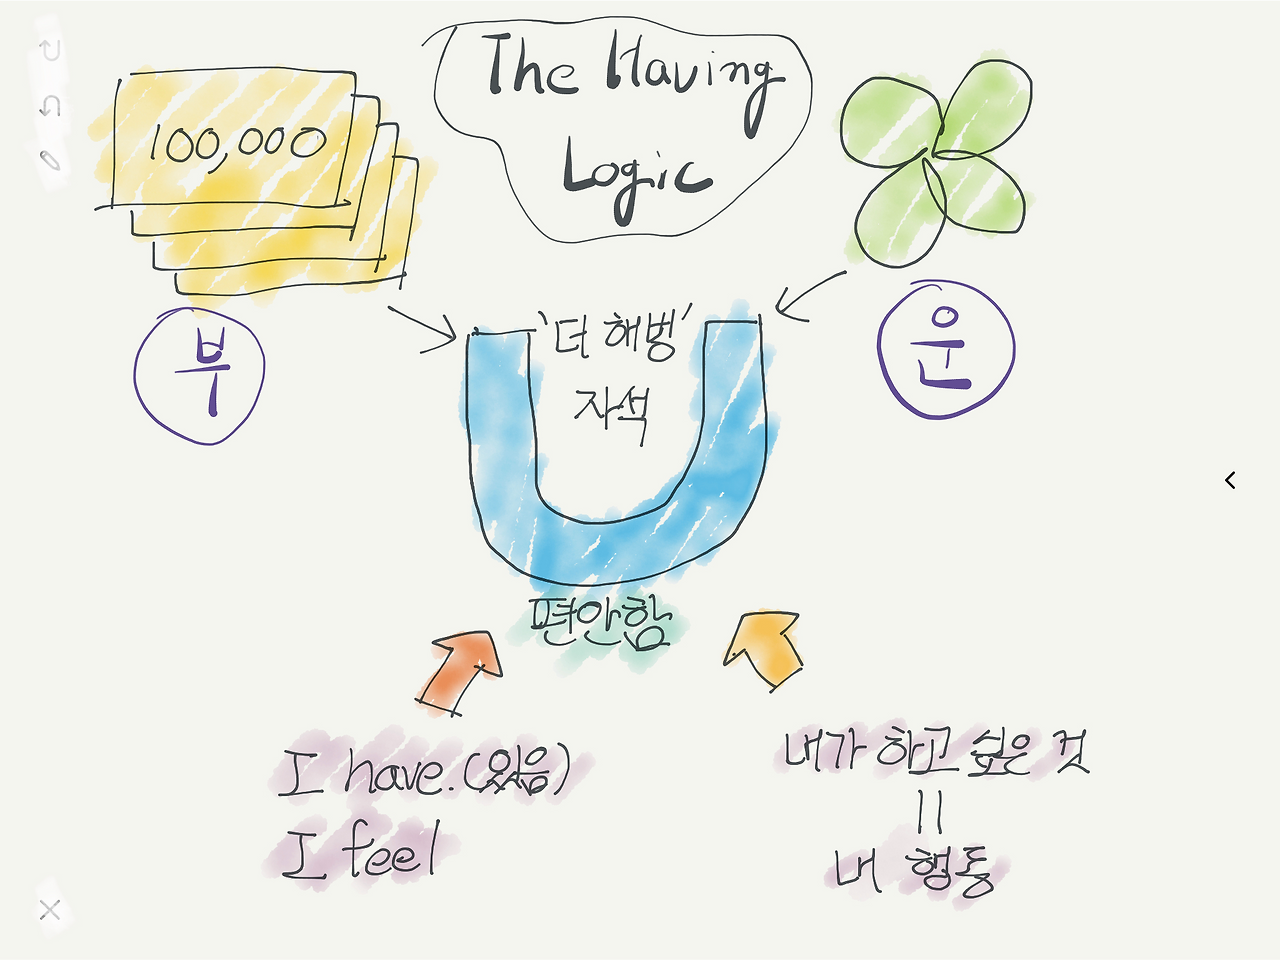 The Having
Logic
100,000
부
운
'더 해빙'
자석
편안함
I have. (있음)
I feel
내가 하고 싶은 것
=
내 행동